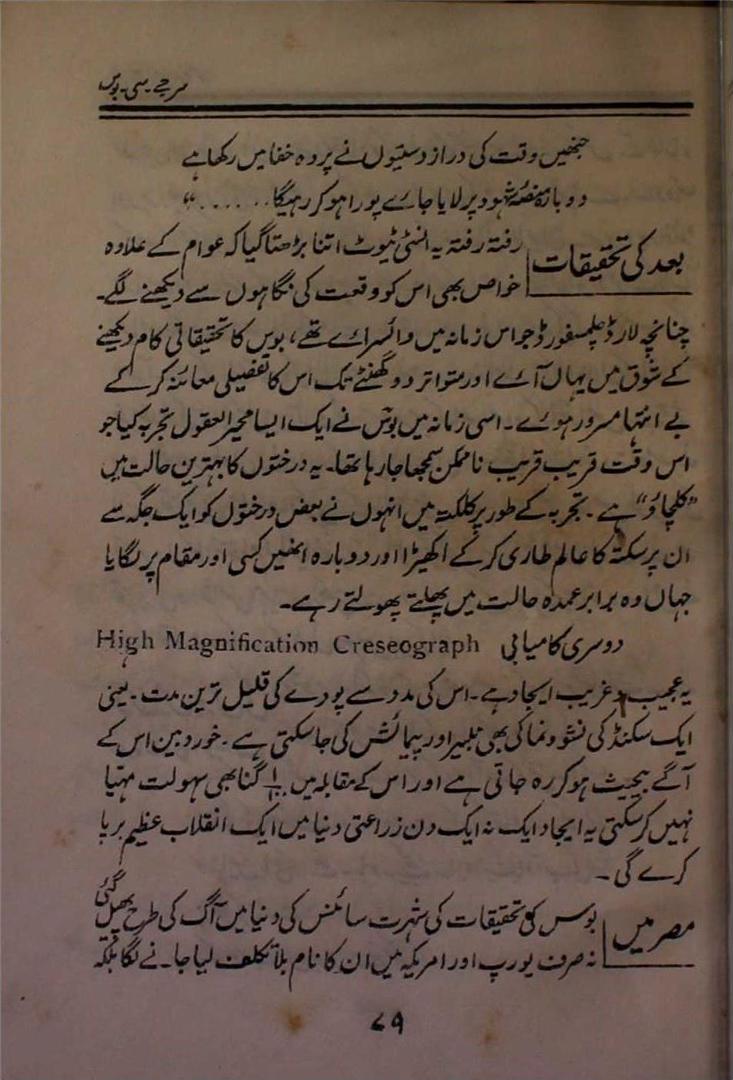 سر جے۔ سی۔ بوس
جنھیں وقت کی دراز دستیوں نے پردہ خفا میں رکھا ہے
دوبارہ منصۂ شہود پر لایا جائے پورا ہو کر رہیگا......“
بعد کی تحقیقات
رفتہ رفتہ یہ انسٹی ٹیوٹ اتنا بڑھتا گیا کہ عوام کے علاوہ
خواص بھی اس کو وقعت کی نگاہوں سے دیکھنے لگے۔
چنانچہ لارڈ چلمسفورڈ جو اس زمانہ میں وائسرائے تھے، بوس کا تحقیقاتی کام دیکھنے
کے شوق میں یہاں آئے اور متواتر دو گھنٹے تک اس کا تفصیلی معائنہ کر کے
بے انتہا مسرور ہوئے۔ اسی زمانہ میں بوس نے ایک ایسا محیر العقول تجربہ کیا جو
اس وقت قریب قریب ناممکن سمجھا جا رہا تھا۔ یہ درختوں کا بہترین حالت میں
”کلچاؤ“ ہے۔ تجربہ کے طور پر کلکتہ میں انہوں نے بعض درختوں کو ایک جگہ سے
ان پر سکتہ کا عالم طاری کر کے اکھیڑا اور دوبارہ انھیں کسی اور مقام پر لگایا
جہاں وہ برابر عمدہ حالت میں پھلتے پھولتے رہے۔
دوسری کامیابی High Magnification Creseograph
یہ عجیب و غریب ایجاد ہے۔ اس کی مدد سے پودے کی قلیل ترین مدت۔ یعنی
ایک سکنڈ کی نشوونما کی بھی تکبیر اور پیمائش کی جا سکتی ہے۔ خوردبین اس کے
آگے ہیچ ہو کر رہ جاتی ہے اور اس کے مقابلہ میں گنا بھی سہولت مہیا
نہیں کر سکتی یہ ایجاد ایک نہ ایک دن زراعتی دنیا میں ایک انقلاب عظیم برپا
کرے گی۔
مصر میں
بوس کی تحقیقات کی شہرت سائنس کی دنیا میں آگ کی طرح پھیل گئی
نہ صرف یورپ اور امریکہ میں ان کا نام بلا تکلف لیا جانے لگا بلکہ
۷۹